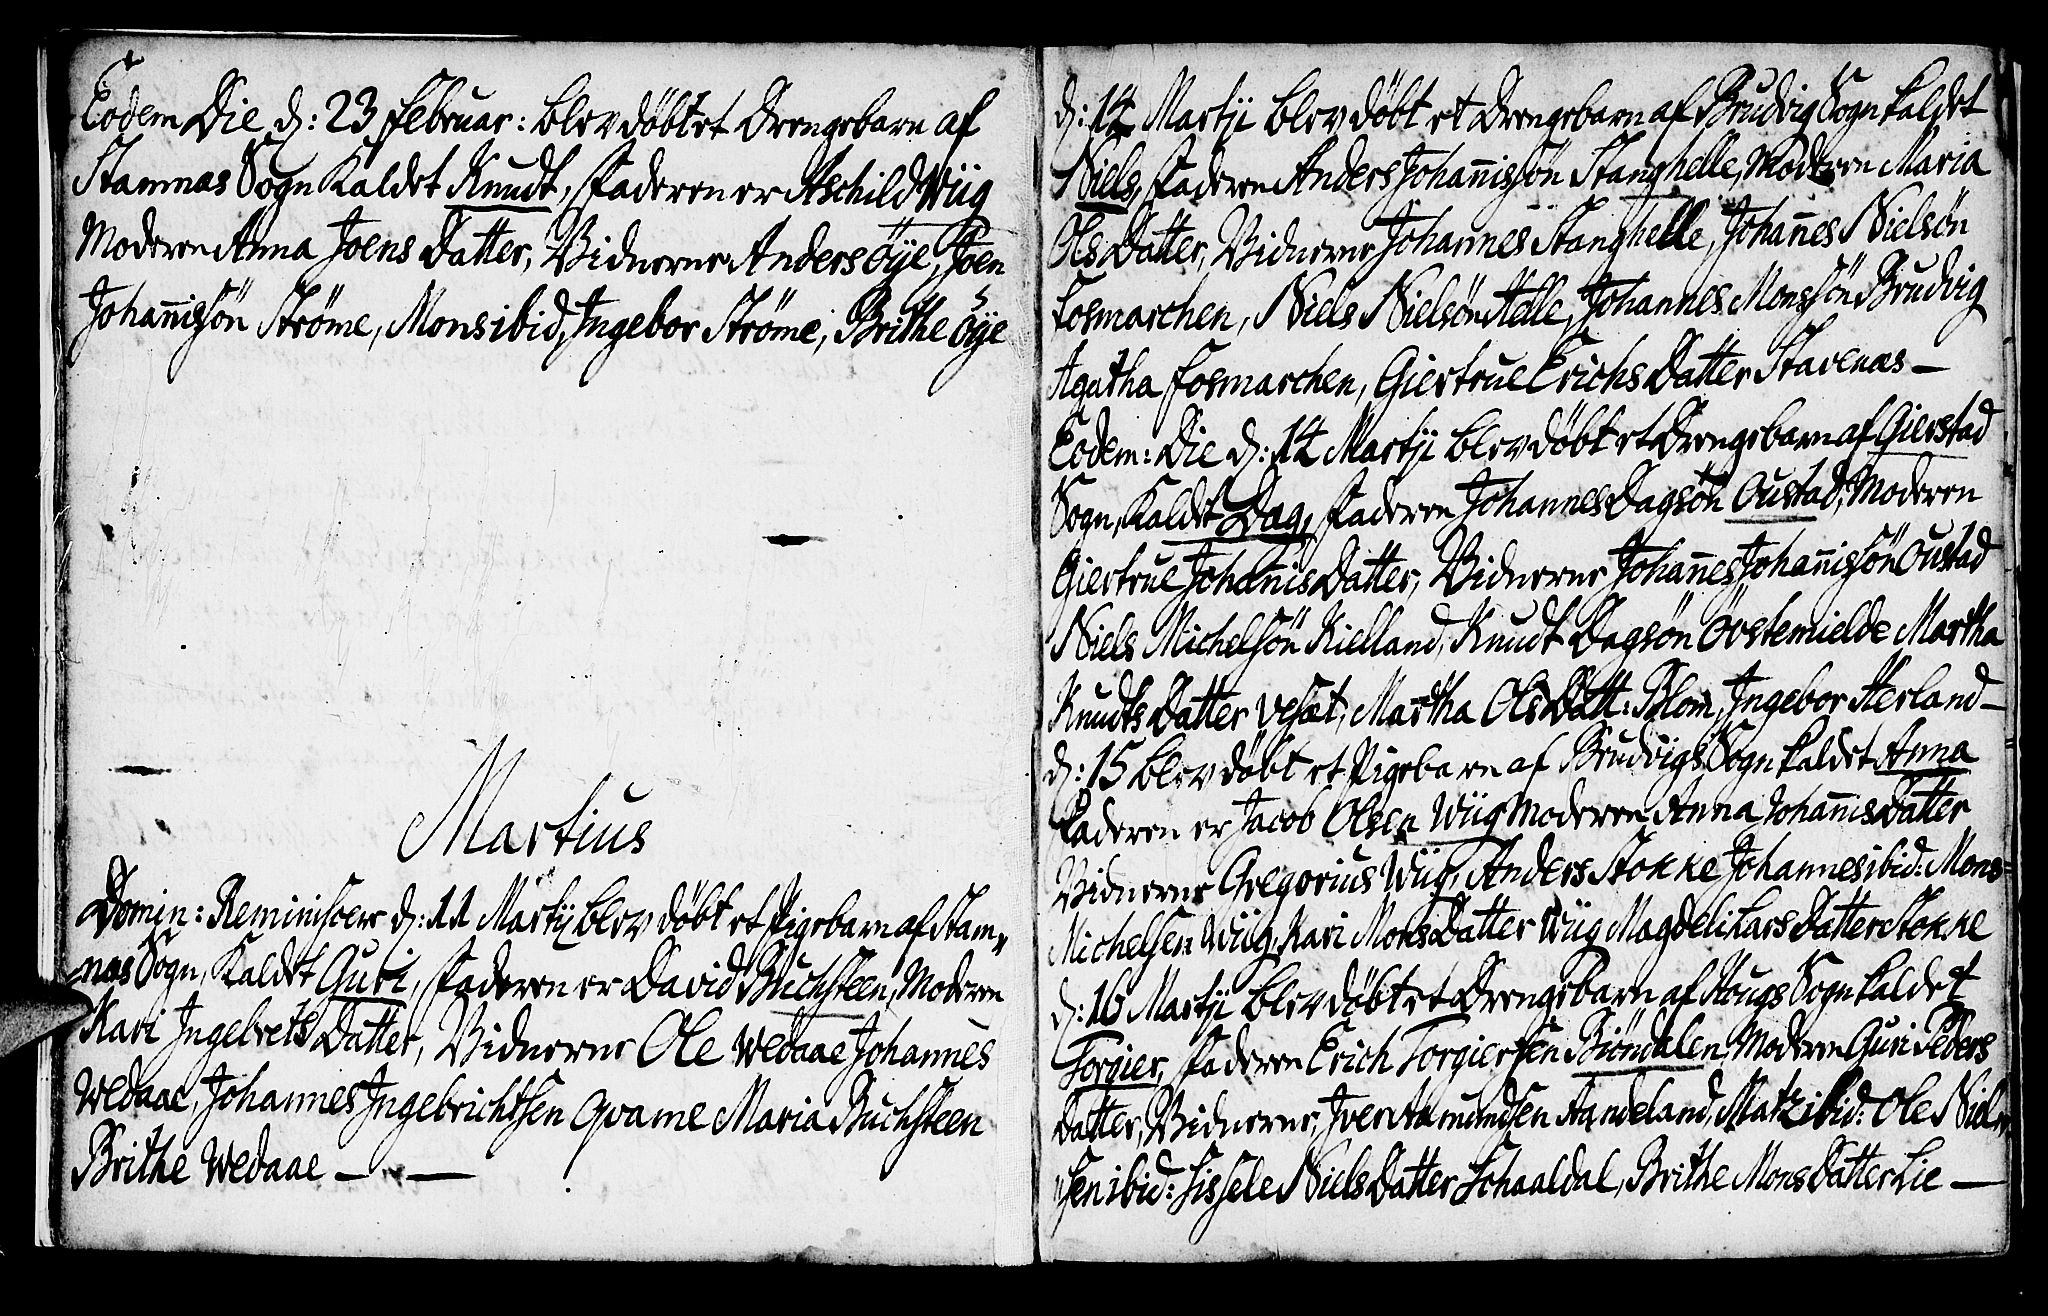 Eodem Die d: 23 Februar: blev döbt et Drengebarn af
Stamnæs Sogn kaldet Knudt, Faderen er Aschild Wiig
Moderen Anna Joens Datter, Vidnerne Anders Öÿe, Joen
Johañisſön Ströme, Mons ibid, Ingebor Ströme, Brithe Öÿe
Martius
Domin: Reminiſcere d: 11 Martÿ blev döbt et Pigebarn af Stam„
næs Sogn, kaldet Guri, Faderen er David Buchſteen, Moderen
Kari Ingebrets Datter, Vidnerne Ole Wedaae Johannes
Wedaae, Johannes Ingebrichtſen Qvame Maria Buchſteen
Brithe Wedaae — —
d: 14 Martÿ blev döbt et Drengebarn af Brudvig Sogn kaldet
Niels, Faderen Anders Johañisſön Stanghelle, Moderen Maria
Ols Datter, Vidnerne Johannes Stanghelle, Johañes Nielsön
Fosmarchen, Niels Nielsön Helle, Johannes Monsſön Brudvig
Agatha Fosmarchen, Giertrue Erichs Datter Stavenæs —
Eodem: Die d: 14 Martÿ blev döbt et Drengebarn af Gierstad
Sogn, kaldet Dag, Faderen Johannes Dagsön Oustad, Moderen
Giertrue Johañis Datter, Vidnerne Johañes Johañisſön Oustad
Niels Michelſön Kielland, Knudt Dagsön Övstemielde Martha
Knudts Datter Veſæt, Martha Ols Datt: Blom, Ingebor Herland —
d: 15 blev döbt et Pigebarn af Brudvigs Sogn kaldet Anna
Faderen er Jacob Olsen Wiig Moderen Anna Johañis Datter
Vidnerne Gregorius Wiig, Anders Stokke Johannes ibid: Mons
Michelſen Wiig, Kari Mons Datter Wiig Magdeli Lars Datter Stokke
d: 16 Martÿ blev döbt et Drengebarn af Hougs Sogn kaldet
Torgier, Faderen Erich Torgierſen Biöndalen, Moderen Guri Peders
Datter, Vidnerne, Iver Aamundſen Aandeland, Matz ibid: Ole Niel„
„ſen ibid: Siſſele Niels Datter Schaaldal, Brithe Mons Datter Lie —